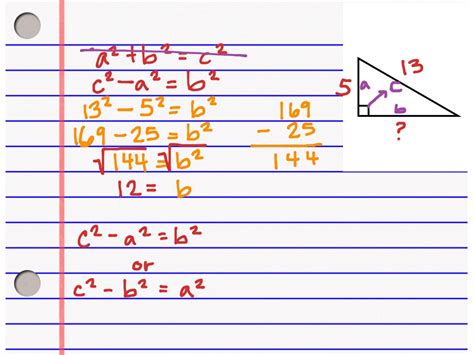 a² + b² = c²
c² − a² = b²
13² − 5² = b²
169 − 25 = b²
√144 = √b²
12 = b
169
− 25
144
c² − a² = b²
or
c² − b² = a²
5
a
c
13
b
?